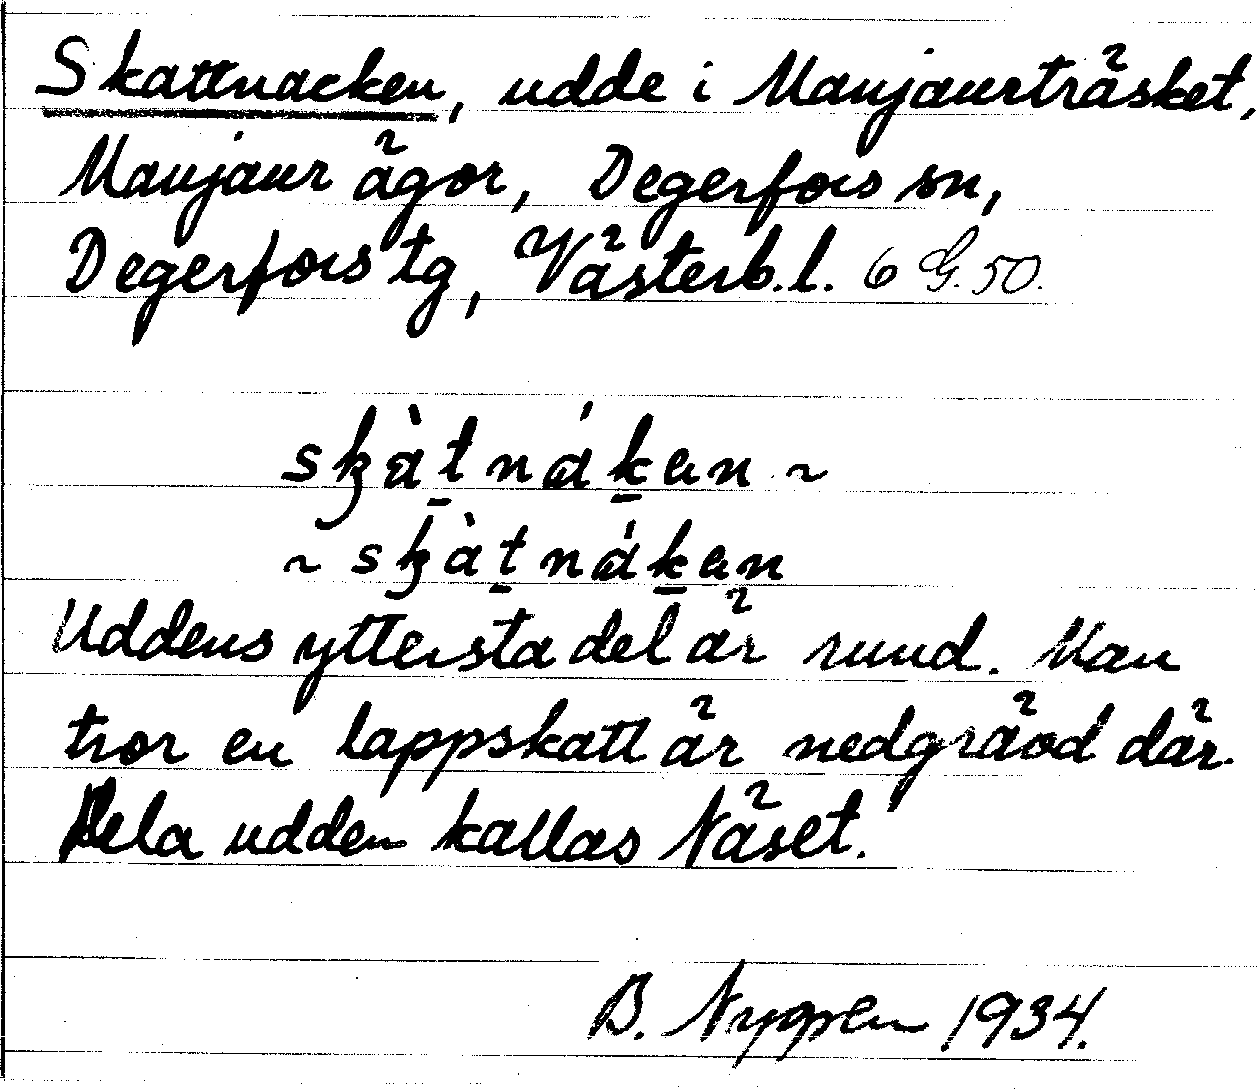 Skattnacken, udde i Manjaurträsket,
Manjaur ägor, Degerfors sn,
Degerfors tg, Västerb.l. 6 G. 50.
skàt náken ~
~ skàt náken
Uddens yttersta del är rund. Man
tror en lappskatt är nedgrävd där.
Hela udden kallas Näset.
B. Nygren 1934.